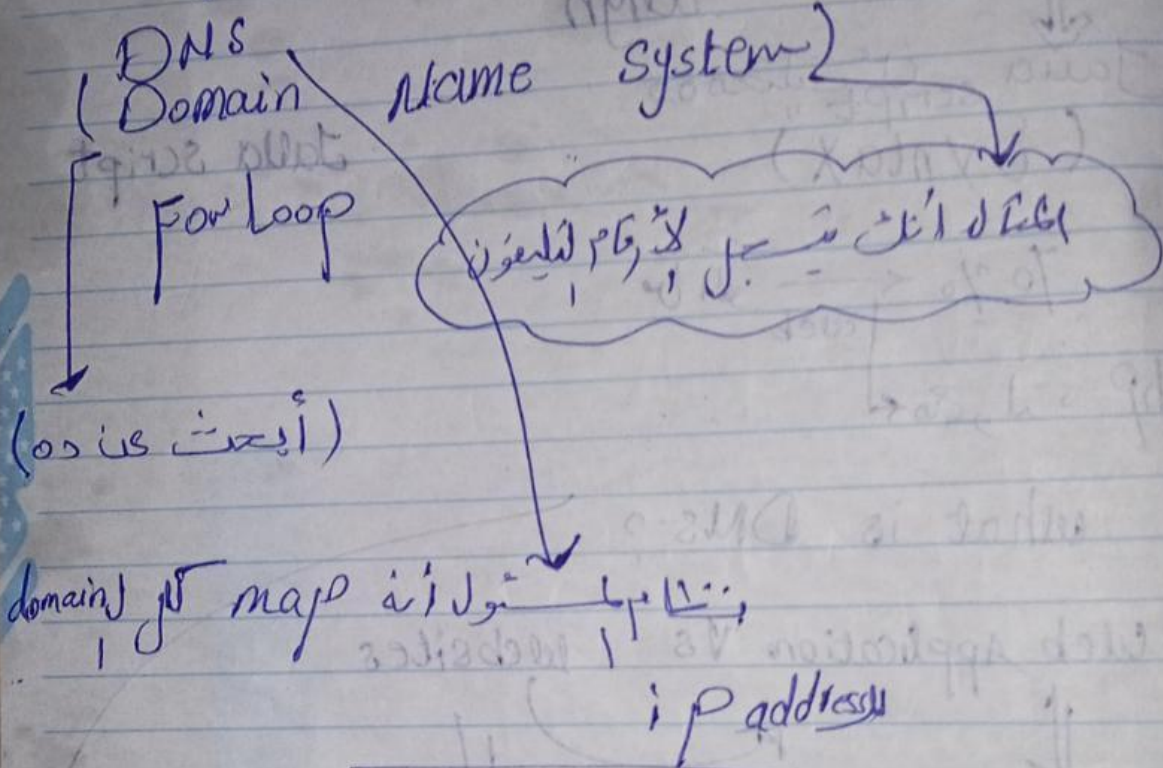 DNS
(Domain Name System)
For Loop
المثال أنك تسجل الأرقام لتليفون
(أبحث عن ده)
نظام مسئول أنه map كل ال domain
ip address